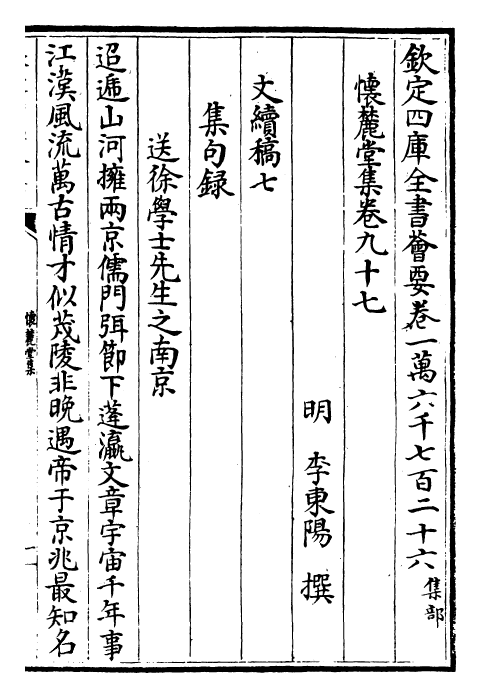 欽定四庫全書薈要卷一萬六千七百二十六集部
懷麓堂集卷九十七
明李東陽撰
文續稿七
集句録
送徐學士先生之南京
迢遞山河擁兩京儒門弭節下蓬瀛文章宇宙千年事
江漢風流萬古情才似茂陵非晚遇帝于京兆最知名
懷麓堂集